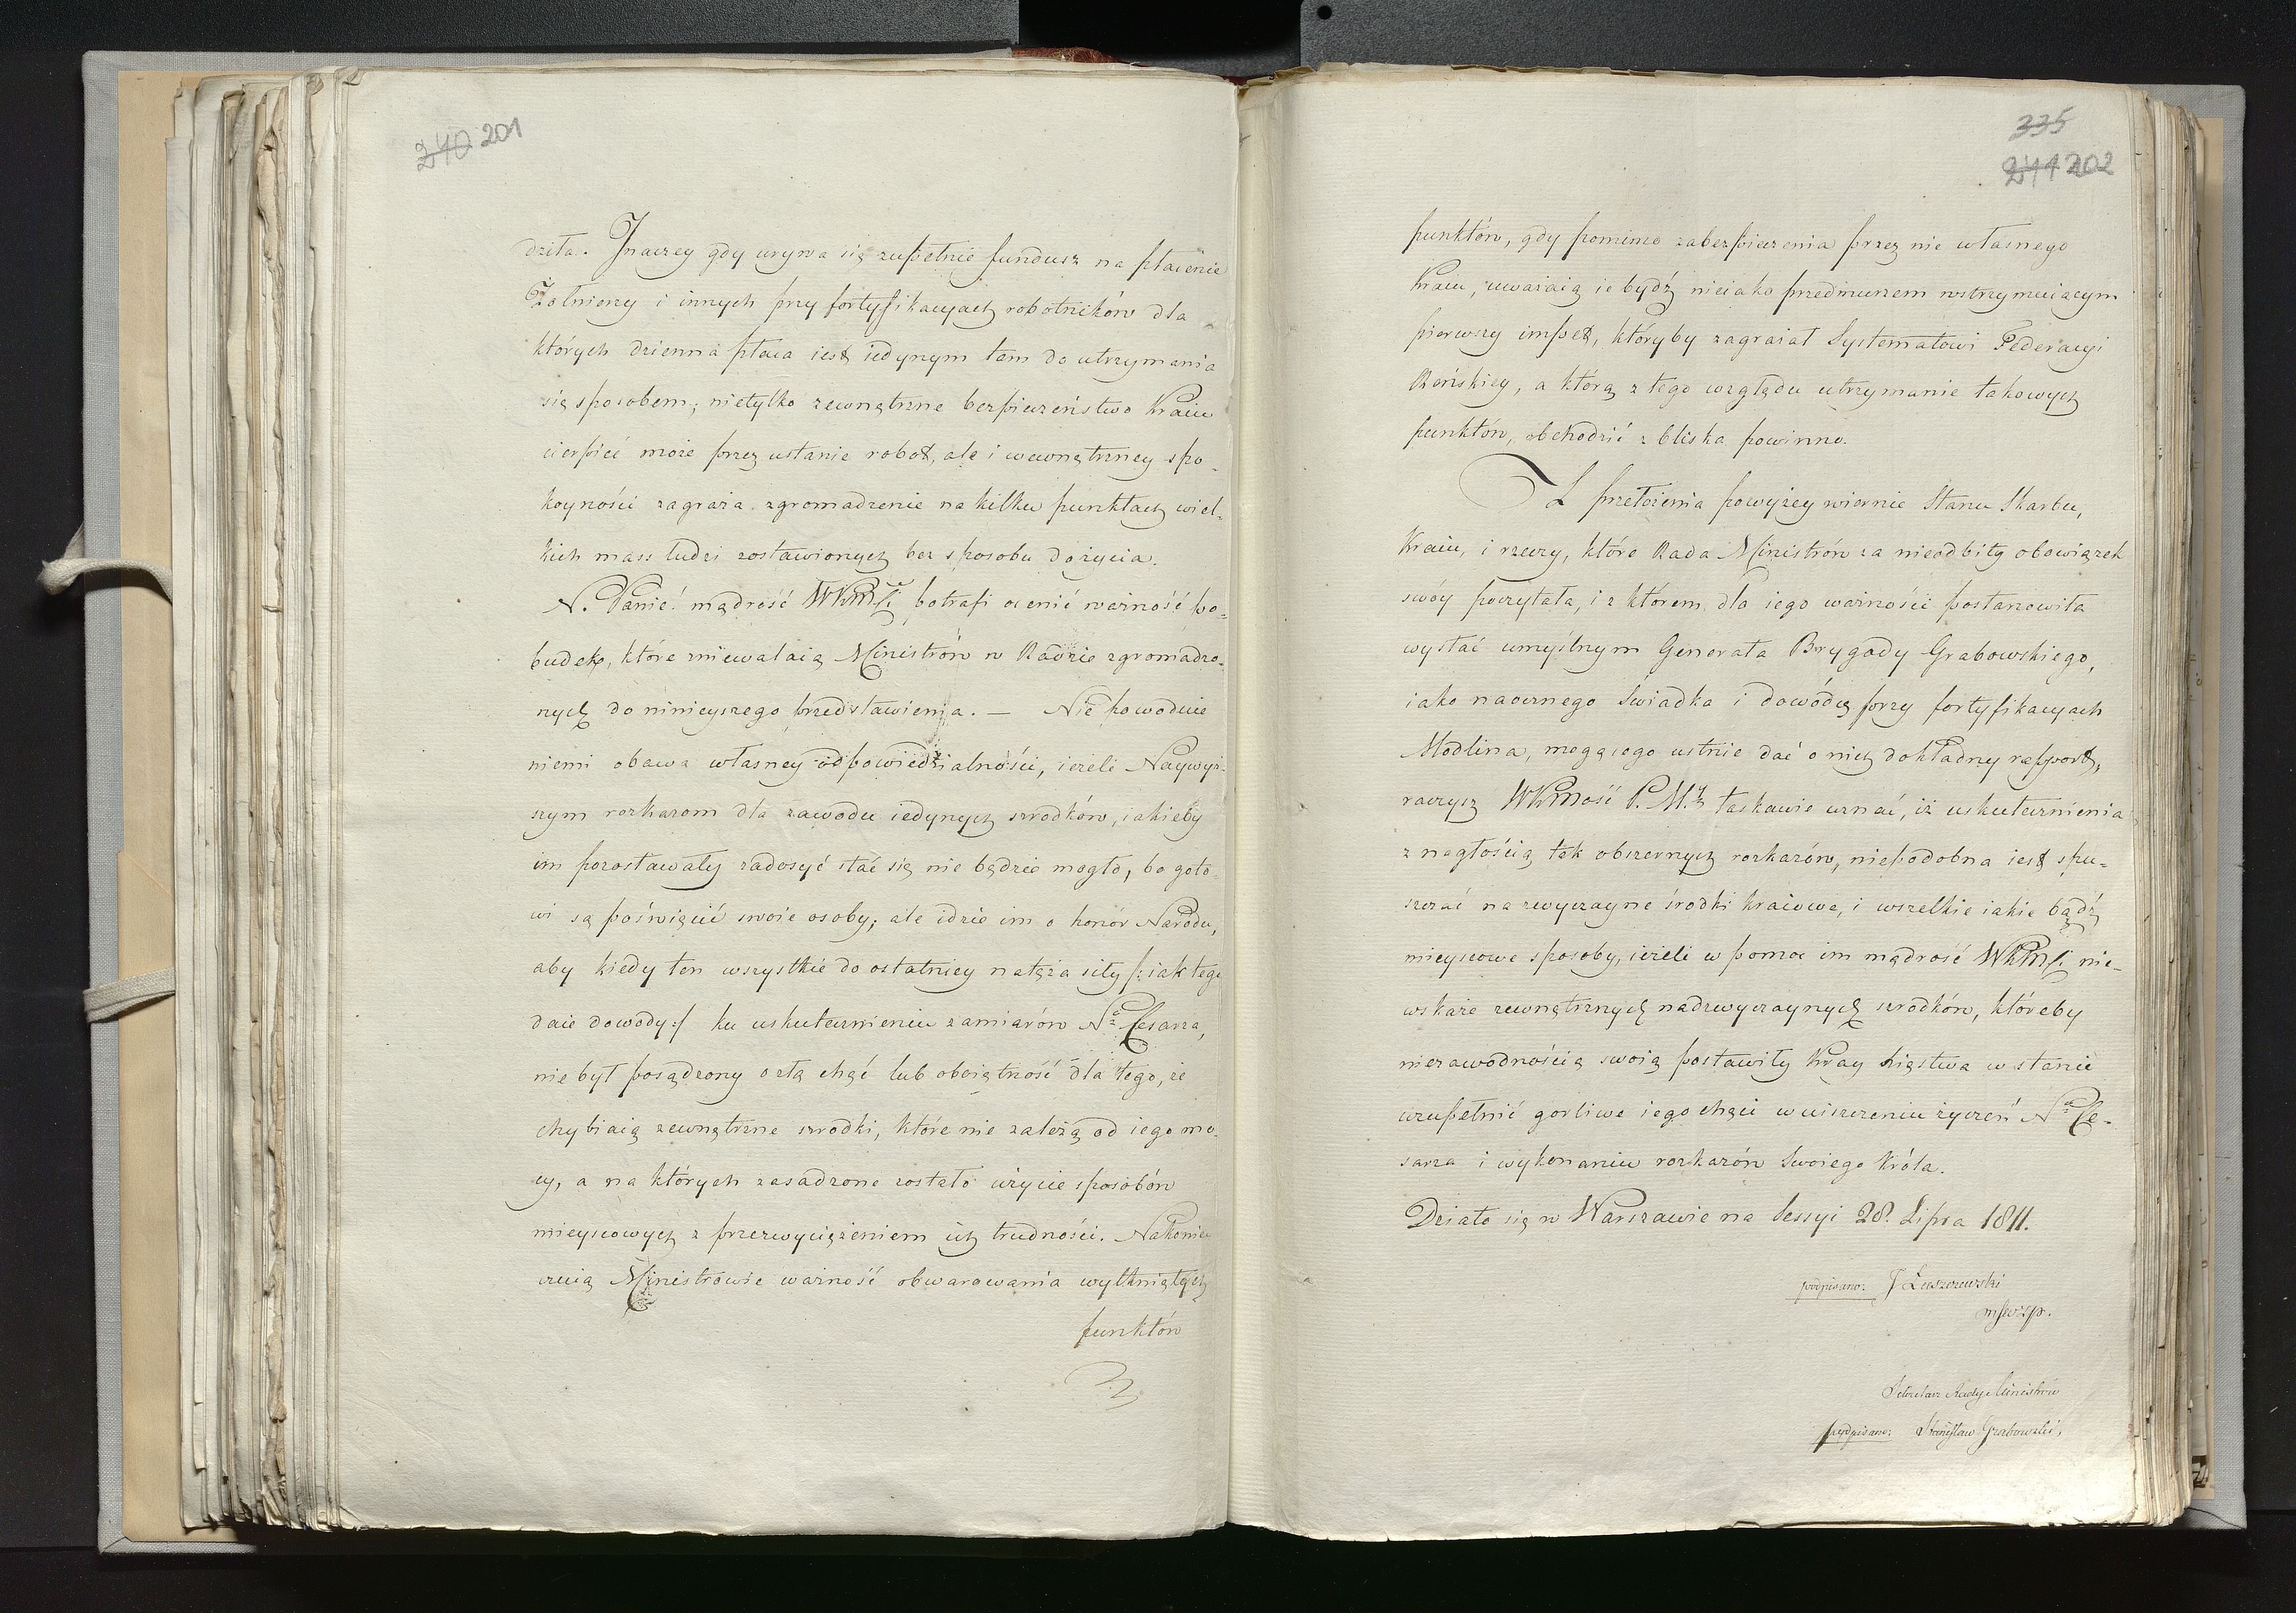 240 201
dziła. Inaczey gdy urywa się zupełnie fundusz na płacenie
Żołnierzy i innych przy fortyfikacyach robotników dla
których dzienna płaca iest iedynym tam do utrzymania
się sposobem; nietylko zewnętrzne bezpieczeństwo Kraiu
cierpieć może przez ustanie robot, ale i wewnętrzney spo-
koyności zagraża zgromadzenie na kilku punktach wiel-
kich mass ludzi zostawionych bez sposobu do życia.
N. Panie! mądrość WKMści potrafi ocenić ważność po-
budek, które zniewalaią Ministrów w Radzie zgromadzo-
nych do ninieyszego przedstawienia. — Nie powoduie
niemi obawa własney odpowiedzialności, ieżeli Naywyż-
szym rozkazom dla zawodu iedynych srzodków, iakieby
im pozostawały zadosyć stać się nie będzie mogło, bo goto-
wi są poświęcić swoie osoby; ale idzie im o honor Narodu,
aby kiedy ten wszystkie do ostatniey natęża siły /:iak tego
daie dowody:/ ku uskutecznieniu zamiarów No Cesarza,
nie był posądzony o złą chęć lub oboiętność dla tego, że
chybiaią zewnętrzne srzodki, które nie zależą od iego mo-
cy, a na których zasadzone zostało użycie sposobów
mieyscowych z przezwyciężeniem ich trudności. Nakoniec
czuią Ministrowie ważność obwarowania wytkniętych
punktów
335
241 202
punktów, gdy pomimo zabezpieczenia przez nie własnego
Kraiu, uważaią ie bydź nieiako przedmurzem wstrzymuiącym
pierwszy impet, któryby zagrażał Systematowi Federacyi
Reńskiey, a którą z tego względu utrzymanie takowych
punktów, obchodzić z bliska powinno.
Z przełożenia powyżey wiernie Stanu Skarbu,
Kraiu, i rzeczy, które Rada Ministrów za nieodbity obowiązek
swóy poczytała, i z którem dla iego ważności postanowiła
wysłać umyślnym Generała Brygady Grabowskiego,
iako naocznego Świadka i dowódcę przy fortyfikacyach
Modlina, mogącego ustnie dać o nich dokładny rapport,
raczysz WKMość P. M. łaskawie uznać, iż uskutecznienia
z nagłością tak obszernych rozkazów, niepodobna iest spu-
szczać na zwyczayne środki kraiowe, i wszelkie iakie bądź
mieyscowe sposoby, ieżeli w pomoc im mądrość WKMści nie-
wskaże zewnętrznych nadzwyczaynych srzodków, któreby
niezawodnością swoią postawiły Kray Xięstwa w stanie
uzupełnić gorliwe iego chęci w uiszczeniu życzeń No Ce-
sarza i wykonaniu rozkazów Swoiego Króla.
Działo się w Warszawie na Sessyi 28. Lipca 1811.
podpisano: J Łuszczewski
Sekretarz Rady Ministrów
podpisano: Stanisław Grabowski,